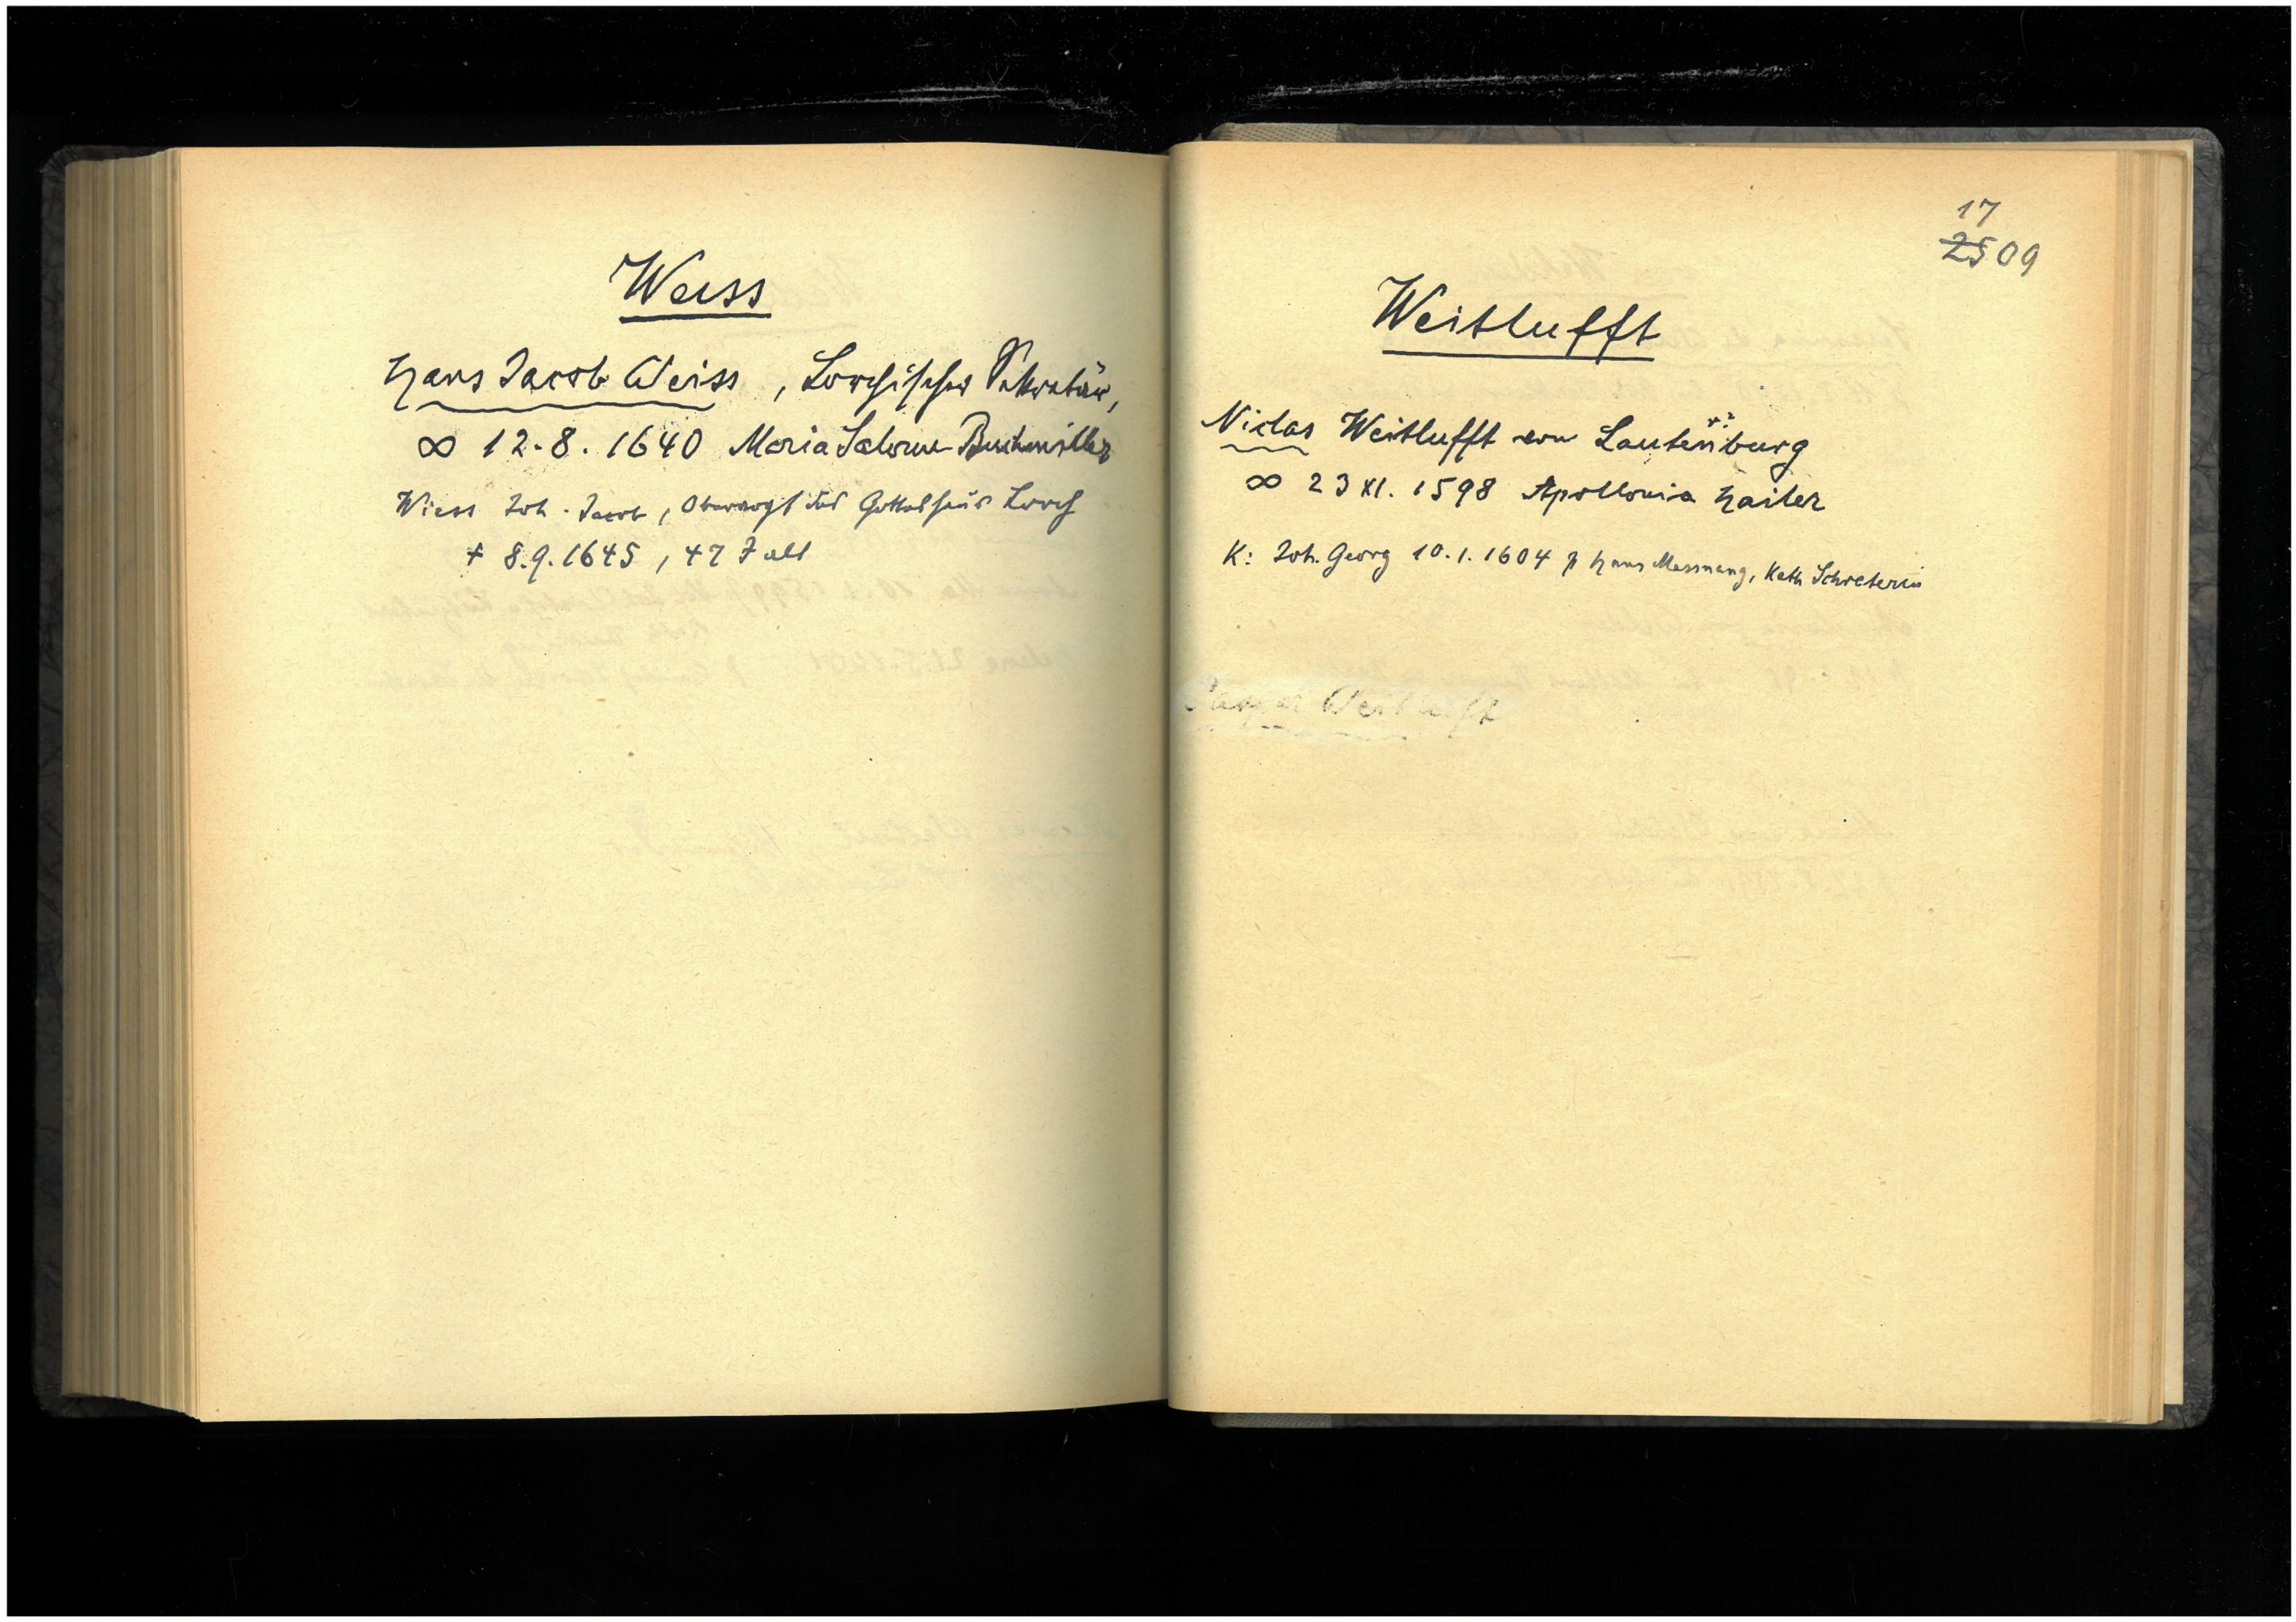 Weiss
Hans Jacob Weiss, Lorchischer Sekretär,
∞ 12.8.1640 Maria Salome Buchmiller
Wiess Joh. Jacob, Obervogt des Gotteshaus Lorch
+ 8.9.1645, 47 J alt
17
2509
Weitlufft
Niclas Weitlufft von Lautenburg
∞ 23 XI. 1598 Apollonia Hailer
K: Joh. Georg 10.1.1604 p Hans Messnang, Kath Schreterin
Weitlufft